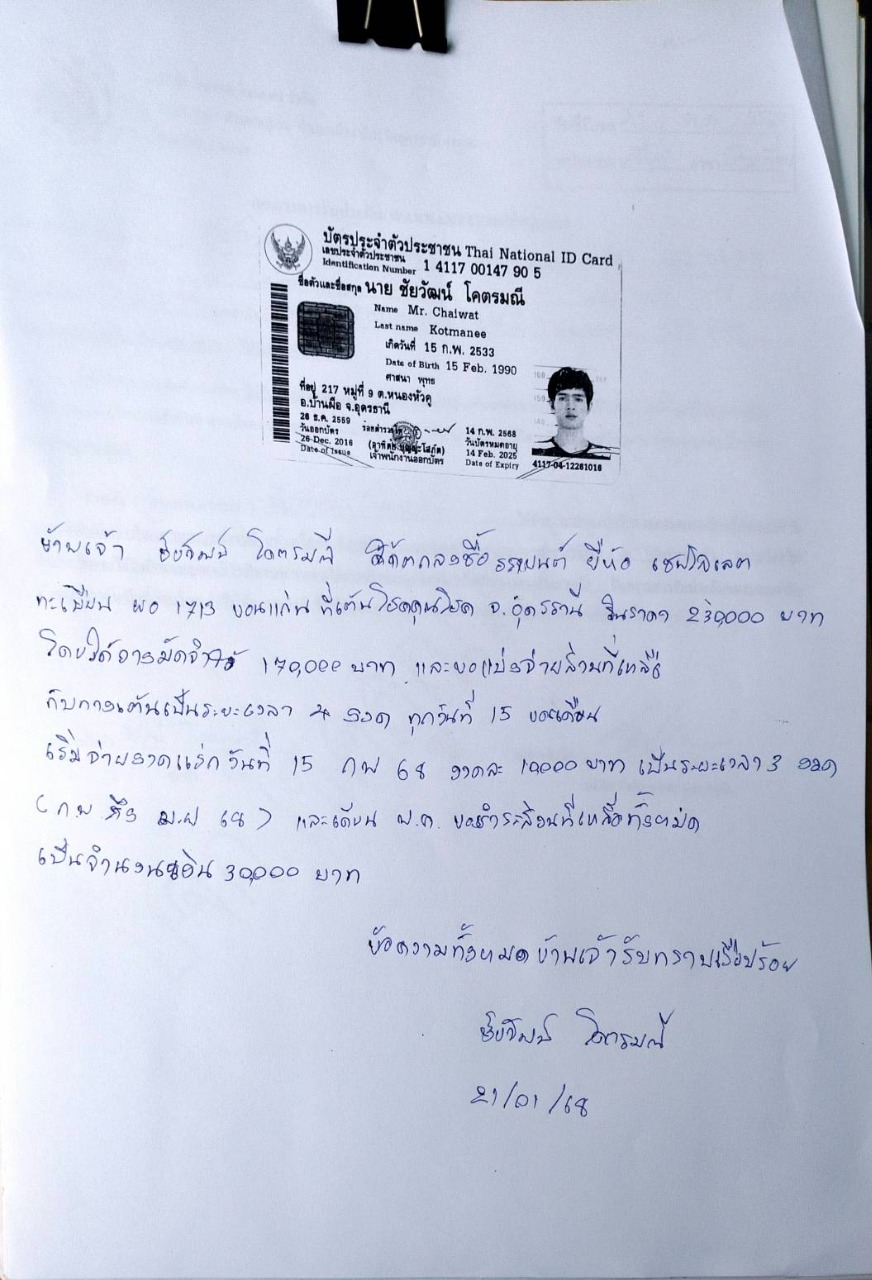 บัตรประจำตัวประชาชน Thai National ID Card
เลขประจำตัวประชาชน
Identification Number 1 4117 00147 90 5
ชื่อตัวและชื่อสกุล นาย ชัยวัฒน์ โคตรมณี
Name Mr. Chaiwat
Last name Kotmanee
เกิดวันที่ 15 ก.พ. 2533
Date of Birth 15 Feb. 1990
ศาสนา พุทธ
ที่อยู่ 217 หมู่ที่ 9 ต.หนองหัวคู
อ.บ้านผือ จ.อุดรธานี
26 ธ.ค. 2559
วันออกบัตร
26 Dec. 2016
Date of Issue
เจ้าพนักงานออกบัตร
14 ก.พ. 2568
วันบัตรหมดอายุ
14 Feb. 2025
Date of Expiry
4117-04-12261016
ข้าพเจ้า ชัยวัฒน์ โคตรมณี ได้ตกลงซื้อรถยนต์ ยี่ห้อ เชฟโรเลต
ทะเบียน ผอ 1713 ขอนแก่น ที่เต้นโชคคูนโชค จ.อุดรธานี ในราคา 230,000 บาท
โดยได้วางมัดจำไว้ 170,000 บาท และขอแบ่งจ่ายส่วนที่เหลือ
กับทางเต้นเป็นระยะเวลา 4 งวด ทุกวันที่ 15 ของเดือน
เริ่มจ่ายงวดแรก วันที่ 15 กพ 68 งวดละ 10,000 บาท เป็นระยะเวลา 3 งวด
(ก.พ ถึง เม.ย 68) และเดือน พ.ค. ขอชำระส่วนที่เหลือทั้งหมด
เป็นจำนวนเงิน 30,000 บาท
ข้อความทั้งหมดข้าพเจ้ารับทราบเรียบร้อย
ชัยวัฒน์ โคตรมณี
21/01/68